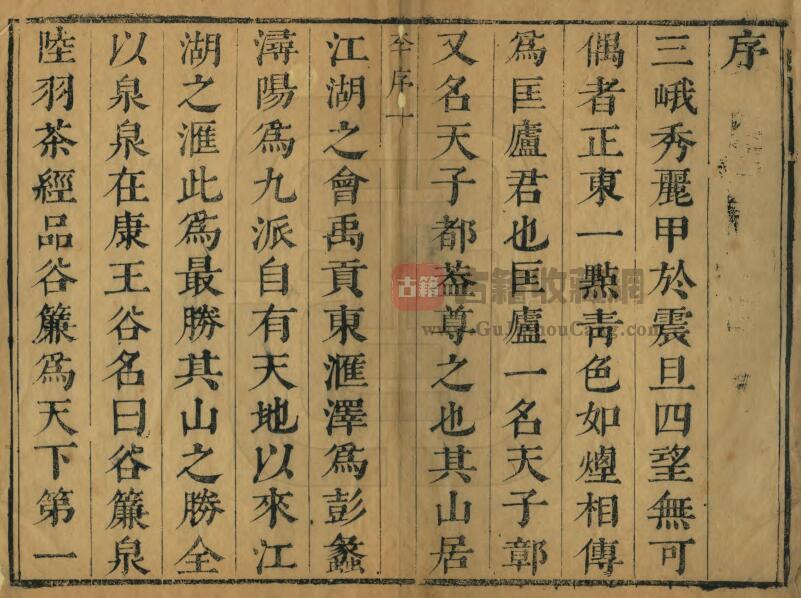 序
三峨秀麗甲於震旦四望無可
偶者正東一點青色如煙相傳
爲匡廬君也匡廬一名天子鄣
又名天子都葢尊之也其山居
序一
江湖之會禹貢東滙澤爲彭蠡
潯陽爲九派自有天地以來江
湖之滙此爲最勝其山之勝全
以泉泉在康王谷名曰谷簾泉
陸羽茶經品谷簾爲天下第一
古籍
古籍收藏網
www.GuJiShouCang.com